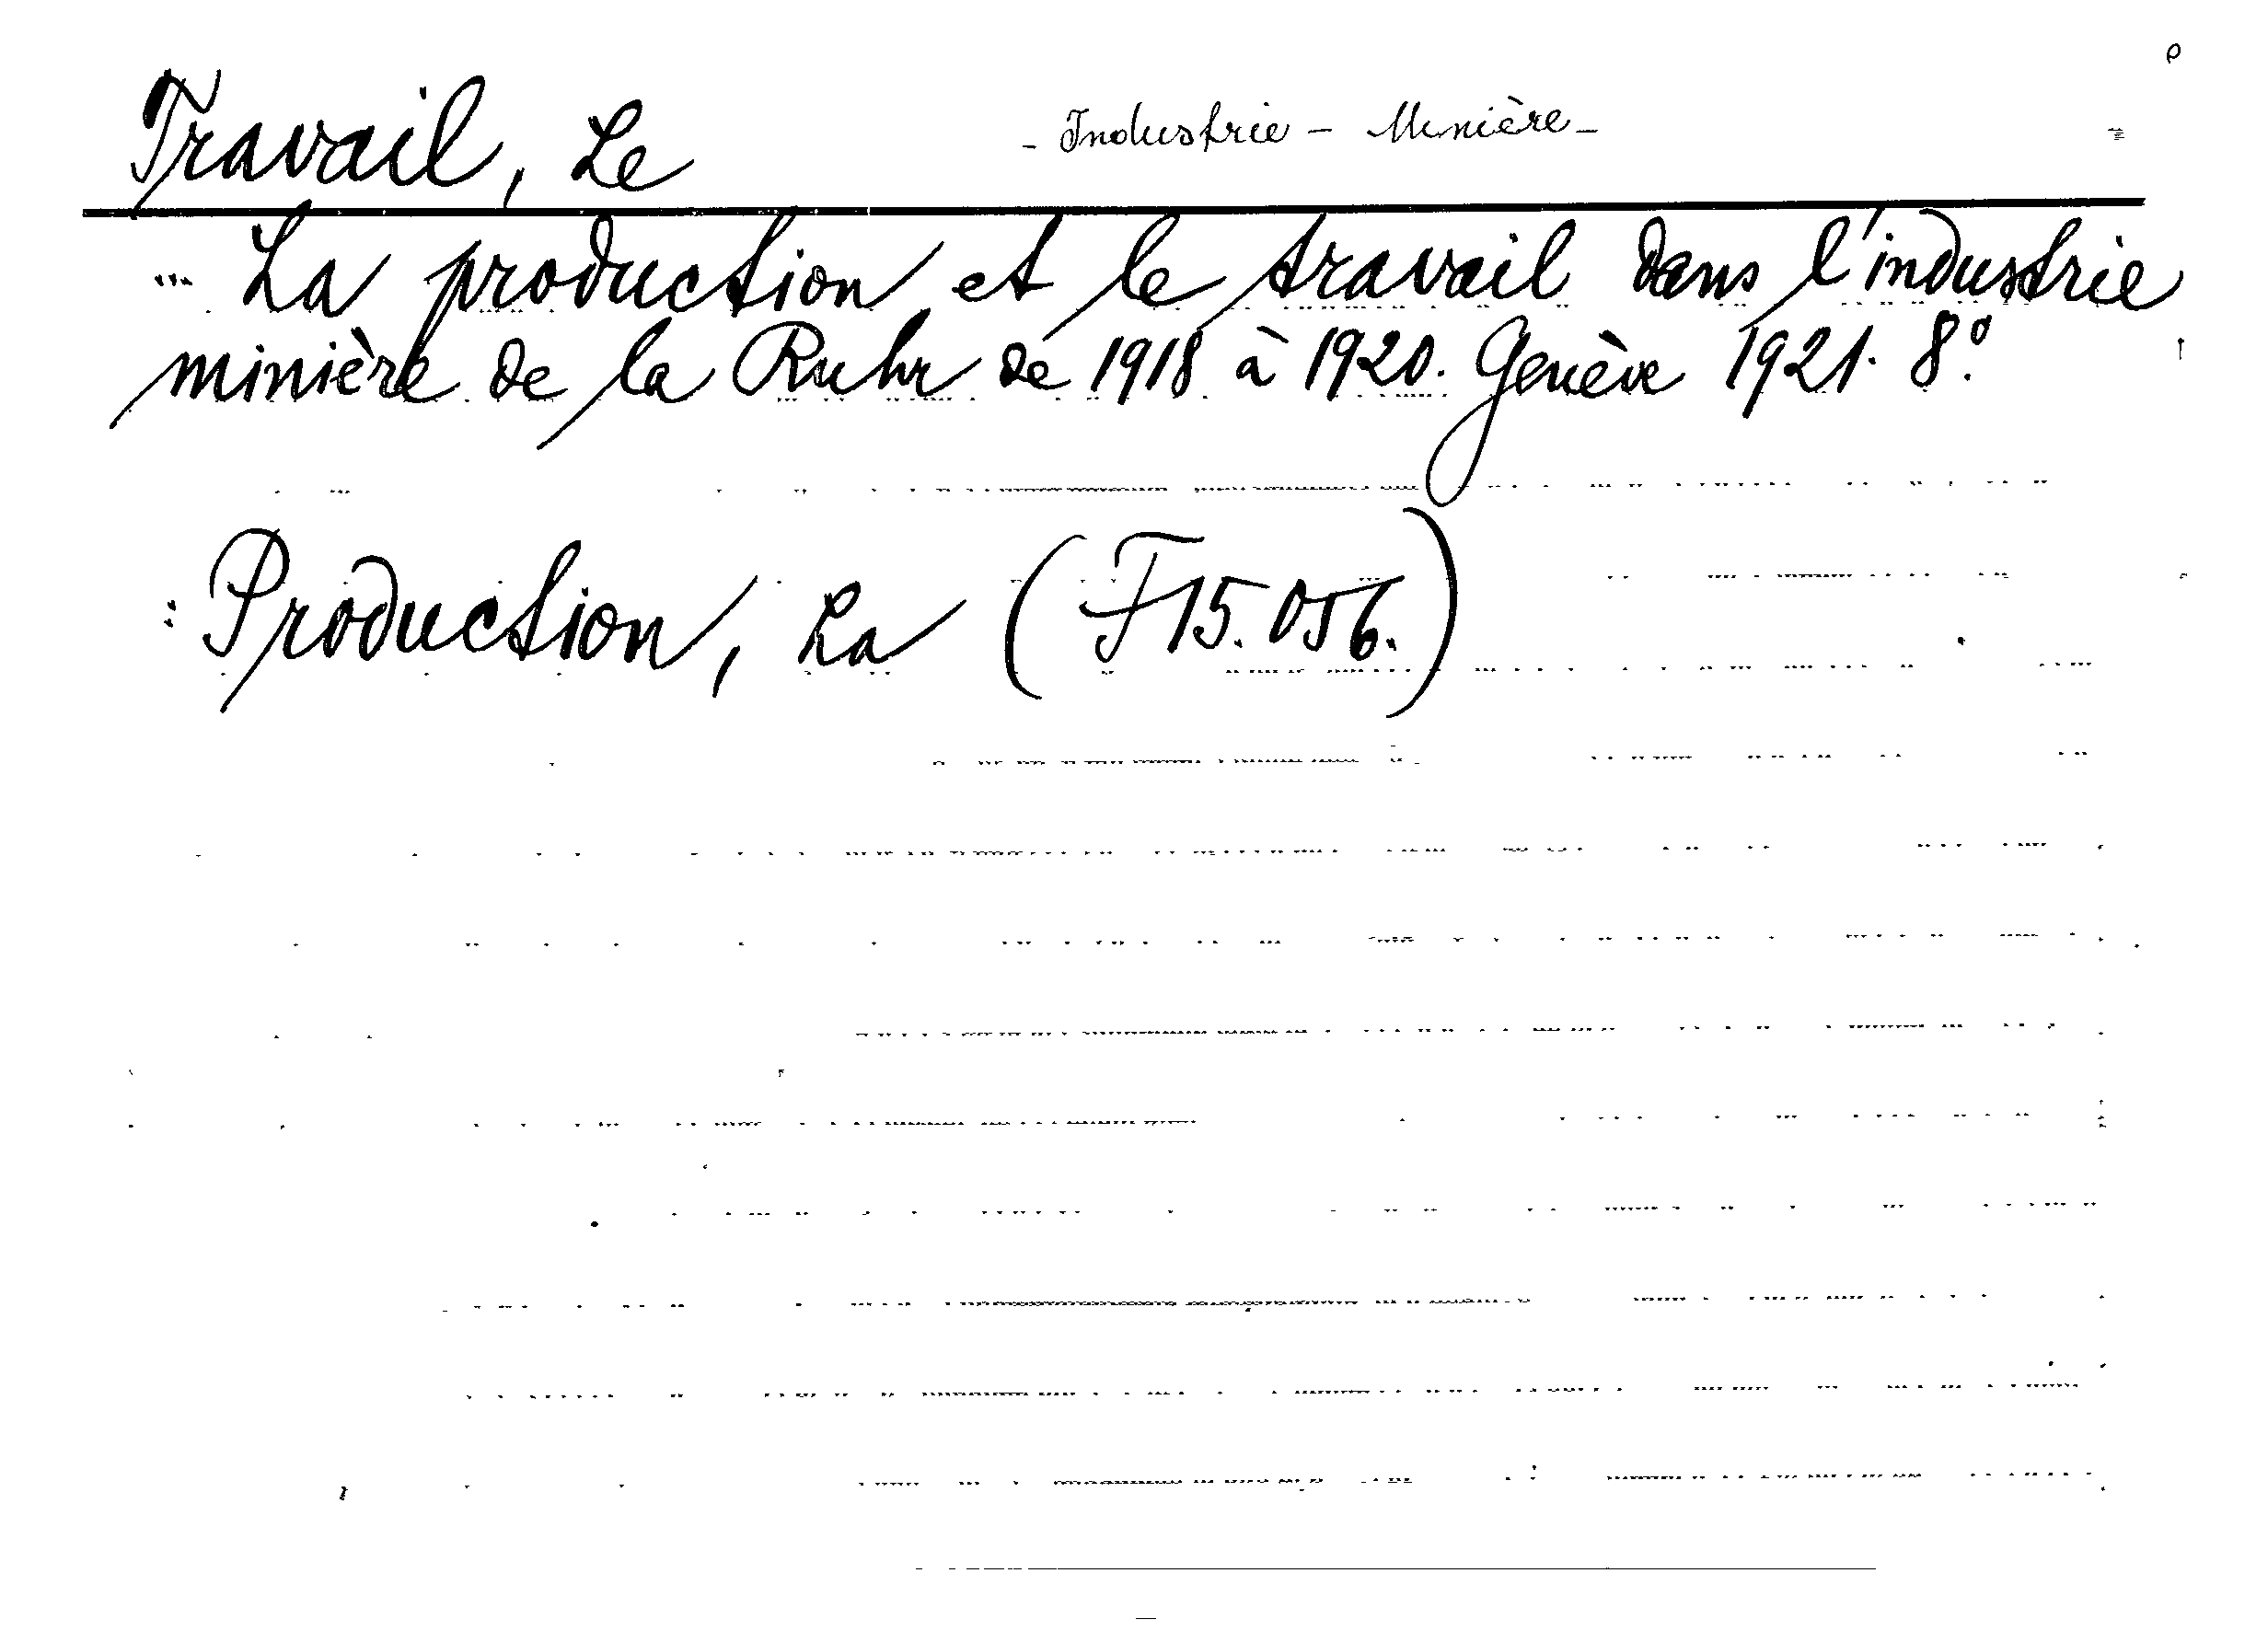 Travail, Le - Industrie - Minière -
... La production et le travail dans l'industrie
minière de la Ruhr de 1918 à 1920. Genève 1921. 8.º
: Production, La (F 15.056.)